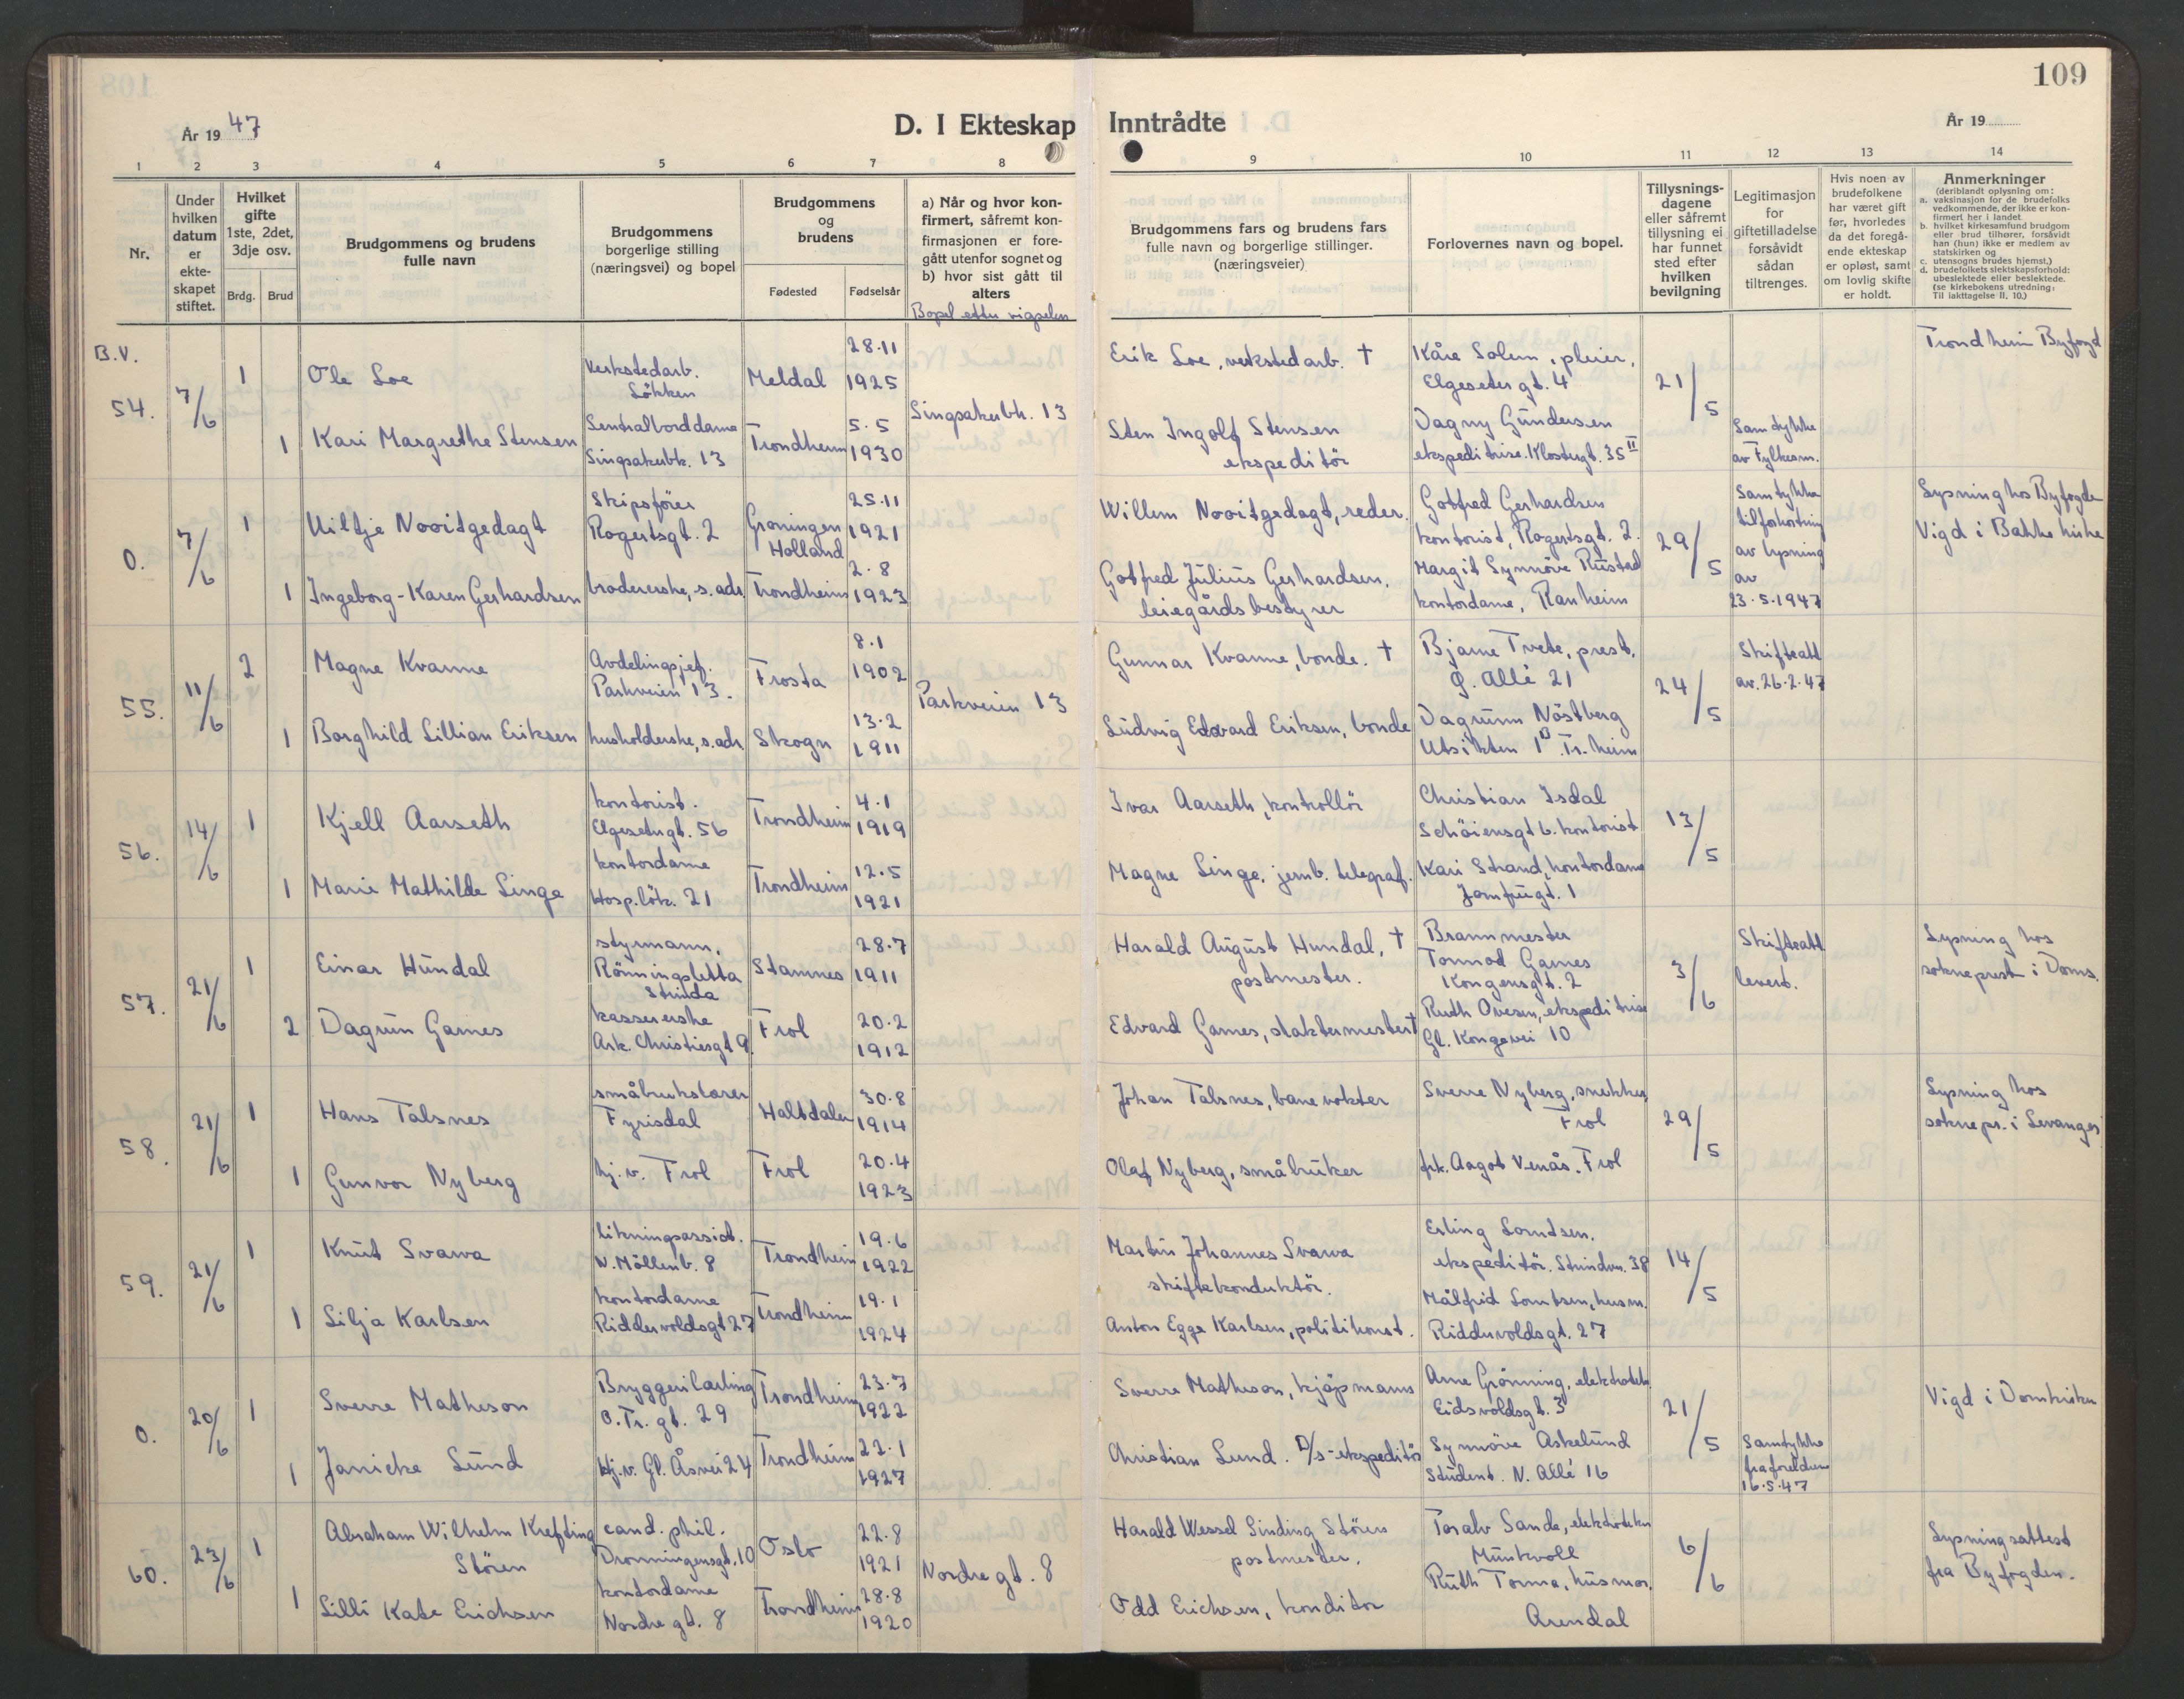 109
År 19 47
D. I Ekteskap Inntrådte
År 19
1 2 3 4 5 6 7 8 9 10 11 12 13 14
Nr.
Under hvilken datum er ekte-skapet stiftet.
Hvilket gifte 1ste, 2det, 3dje osv.
Brdg. Brud
Brudgommens og brudens fulle navn
Brudgommens borgerlige stilling (næringsvei) og bopel
Brudgommens og brudens
Fødested Fødselsår
a) Når og hvor kon-firmert, såfremt kon-firmasjonen er fore-gått utenfor sognet og b) hvor sist gått til alters
Bopel etter vigselen
Brudgommens fars og brudens fars fulle navn og borgerlige stillinger. (næringsveier)
Forlovernes navn og bopel.
Tillysnings-dagene eller såfremt tillysning ei har funnet sted efter hvilken bevilgning
Legitimasjon for giftetilladelse forsåvidt sådan tiltrenges.
Hvis noen av brudefolkene har været gift før, hvorledes da det foregå-ende ekteskap er opløst, samt om lovlig skifte er holdt.
Anmerkninger
(deriblandt oplysning om:
a. vaksinasjon for de brudefolks vedkommende, der ikke er kon-firmert her i landet
b. hvilket kirkesamfund brudgom eller brud tilhører, forsåvidt han (hun) ikke er medlem av statskirken og
c. utensogns brudes hjemst.)
d. brudefolkets slektskapsforhold: ubeslektede eller beslektede. (se kirkebokens utredning: Til iakttagelse II, 10.)
B.V.
54. 7/6 1 Ole Loe Verkstedarb. Løkken Meldal 28.11 1925 Singsakerbk. 13 Erik Loe, verkstedarb. † Kåre Solem, pleier, Elgeseter gt. 4 21/5 Trondheim Byfogd
1 Kari Margrethe Stensen Sentralborddame Singsakerbk. 13 Trondheim 5.5 1930 Sten Ingolf Stensen ekspeditör Dagny Gundersen ekspeditrise. Klostergt. 35 II Samtykke av Fylkesm.
0. 7/6 1 Uiltje Nooitgedagt Skipsfører Rogertsgt. 2 Groningen Holland 25.11 1921 Willem Nooitgedagt, reder. Gotfred Gerhardsen kontorist, Rogertsgt. 2. 29/5 Samtykke til forkortning av lysning av 23.5.1947 Lysning hos Byfogde Vigd i Bakke kirke
1 Ingeborg-Karen Gerhardsen brodererske, s. adr. Trondheim 2.8 1923 Gotfred Julius Gerhardsen, leiegårdsbestyrer Margit Synnöve Rustad kontordame, Ranheim
55. 11/6 2 Magne Kvamme Avdelingsjef. Parkveien 13. Frosta 8.1 1902 Parkveien 13 Gunnar Kvamme, bonde. † Bjarne Tvete, prest. Ø. Allé 21 24/5 Skifteatt av. 26.2.47
1 Borghild Lillian Eriksen husholderske, s. adr. Skogn 13.2 1911 Ludvig Edvard Eriksen, bonde Dagrunn Nöstberg Utsikten 1B Tr.heim
56. 14/6 1 Kjell Aarseth kontorist. Elgesetergt. 56 Trondheim 4.1 1919 Ivar Aarseth, kontrollör Christian Isdal Schöiensgt 6. kontorist 13/5
1 Marie Mathilde Singe kontordame Hosp.lök. 21 Trondheim 12.5 1921 Magne Singe, jernb. telegraf. Kari Strand, kontordame Jomfrugt. 1
57. 21/6 1 Einar Hundal styrmann. Rönningsletta Strinda Stamnes 28.7 1911 Harald August Hundal, † postmester. Brannmester Tormod Garnes Kongensgt. 2 3/6 Skifteatt levert. Lysning hos sokneprest i Doms.
2 Dagrun Garnes kassererske Ark. Christiesgt 9. Frol 20.2 1912 Edvard Garnes, slaktermester † Ruth Ovesen, ekspeditrise Gl. Kongevei 10
58. 21/6 1 Hans Talsnes småbrukslærer Fyrisdal Haltdalen 30.8 1914 Johan Talsnes, banevokter Sverre Nyberg, snekker, Frol 29/5 Lysning hos soknepr. i Levanger
1 Gunvor Nyberg hj.v. Frol Frol 20.4 1923 Olaf Nyberg, småbruker frk. Aagot Venås. Frol
59. 21/6 1 Knut Svarva likningsassist. N. Möllenb. 8 Trondheim 19.6 1922 Martin Johannes Svarva skiftekonduktör. Erling Lorntsen. ekspeditör. Strindvn. 38 14/5
1 Lilja Karlsen kontordame Riddervoldsgt 27 Trondheim 19.1 1924 Anton Egge Karlsen, politikonst. Målfrid Lorntsen, husm. Riddervoldsgt. 27
0. 20/6 1 Sverre Matheson Bryggerilærling O. Tr. gt. 29 Trondheim 23.7 1922 Sverre Matheson, kjøpmann Arne Grønning, elektrotekn. Eidsvoldsgt. 3 21/5 Vigd i Domkirken
1 Janicke Lund Hj.v. Gl. Åsvei 24 Trondheim 22.1 1927 Christian Lund. D/s-ekspeditör Synnöve Askelund Student. N. Allé 16 Samtykke fra foreldrene 16.5.47
60. 23/6 1 Abraham Wilhelm Krefting Stören cand. phil. Dronningensgt. 10 Oslo 22.8 1921 Nordre gt. 8 Harald Wessel Sinding Stören postmester. Toralv Sande, elektrotekn Munkvoll 6/6 Lysningsattest fra Byfogden.
1 Lilli Kate Erichsen kontordame Nordre gt. 8 Trondheim 28.8 1920 Odd Erichsen, konditor Ruth Torma, husmor. Arendal